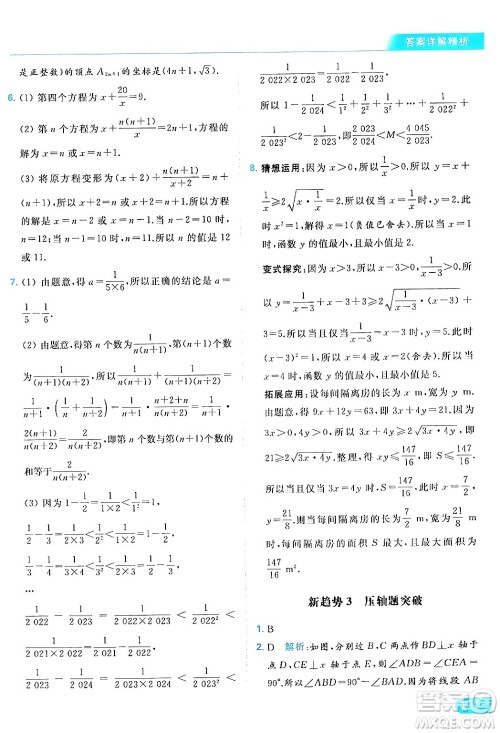 答案详解精析
是正整数)的顶点 A₂ₙ₊₁ 的坐标是(4n+1,√3).
6. (1) 第四个方程为 x+20/x=9.
(2) 第 n 个方程为 x+n(n+1)/x=2n+1,方程的
解为 x=n 或 x=n+1.
(3) 将原方程变形为(x+2)+n(n+1)/(x+2)=n+
(n+1),所以 x+2=n 或 x+2=n+1,所以方程
的解是 x=n-2 或 x=n-1.当 n-2=10 时,
n=12;当 n-1=10 时,n=11.所以 n 的值是 12
或 11.
7. (1) 由题意,得 a=1/(5×6),所以正确的结论是 1/(5×6)=
1/5-1/6.
(2) 由题意,可知第 n 个数为 1/(n(n+1)),所以第
(n+1)个数为 1/((n+1)(n+2)),所以 1/(n(n+1))+
1/((n+1)(n+2))=1/(n+1)·(1/n+1/(n+2))=1/(n+1)·
2(n+1)/(n(n+2))=2/(n(n+2)),即第 n 个数与第(n+1)个数
的和等于2/(n(n+2)).
(3) 因为 1-1/2=1/(1×2)<1/1²=1,
1/2-1/3=1/(2×3)<1/2²<1/(1×2)=1-1/2,
1/3-1/4=1/(3×4)<1/3²<1/(2×3)=1/2-1/3,
…
1/2 022-1/2 023=1/(2 022×2 023)<1/2 022²<
1/(2 021×2 022)=1/2 021-1/2 022,
1/2 023-1/2 024=1/(2 023×2 024)<1/2 023²<
1/(2 022×2 023)=1/2 022-1/2 023,
所以 1-1/2 024<1/1²+1/2²+1/3²+…+1/2 022²+
1/2 023²<2-1/2 023,即2 023/2 024<M<4 045/2 023.
8. 猜想运用:因为 x>0,所以1/x>0,所以 y=x+
1/x≥2√(x·1/x)=2,所以当 x=1/x时,y最小值=2,
此时 x²=1,解得 x=1(负值已舍去),所以当 x=1
时,函数 y 的值最小,且最小值为 2.
变式探究:因为 x>3,所以 x-3>0,1/(x-3)>0,所
以 y=1/(x-3)+x-3+3≥2√(1/(x-3)·(x-3))+
3=5.所以当 1/(x-3)=x-3 时,y最小值=5,此时
(x-3)²=1,解得 x=4(x=2 舍去),所以当 x=4
时,函数 y 的值最小,且最小值为 5.
拓展应用:设每间隔离房的长为 x m,宽为 y m.
由题意,得 9x+12y=63,即 3x+4y=21.因为
3x>0,4y>0,所以 3x+4y≥2√(3x·4y),即
21≥2√(3x·4y),整理,得 xy≤147/16,即 S≤147/16,
所以当 3x=4y 时,S最大值=147/16,此时 x=7/2,
y=21/8.所以当每间隔离房的长为7/2 m,宽为21/8 m
时,每间隔离房的面积 S 最大,且最大面积是
147/16 m².
新趋势 3 压轴题突破
1. B
2. D 解析:如图,分别过 A、C 两点作 BD⊥x 轴
于点 D,CE⊥x 轴于点 E,所以∠ADB=∠CEA=
90°.所以∠BAD+∠ABD=90°.因为将线段 AB